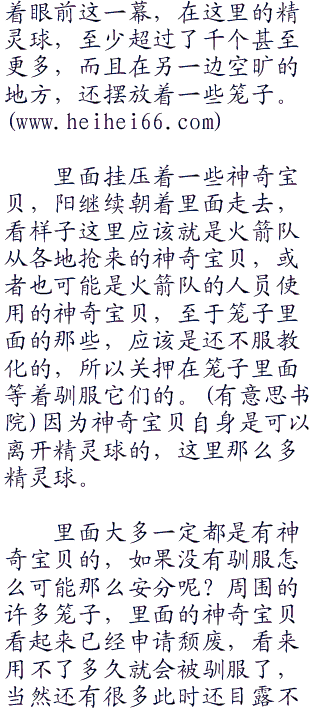 着眼前这一幕，在这里的精
灵球，至少超过了千个甚至
更多，而且在另一边空旷的
地方，还摆放着一些笼子。
(www.heihei66.com)
里面挂压着一些神奇宝
贝，阳继续朝着里面走去，
看样子这里应该就是火箭队
从各地抢来的神奇宝贝，或
者也可能是火箭队的人员使
用的神奇宝贝，至于笼子里
面的那些，应该是还不服教
化的，所以关押在笼子里面
等着驯服它们的。(有意思书
院)因为神奇宝贝自身是可以
离开精灵球的，这里那么多
精灵球。
里面大多一定都是有神
奇宝贝的，如果没有驯服怎
么可能那么安分呢？周围的
许多笼子，里面的神奇宝贝
看起来已经申请颓废，看来
用不了多久就会被驯服了，
当然还有很多此时还目露不